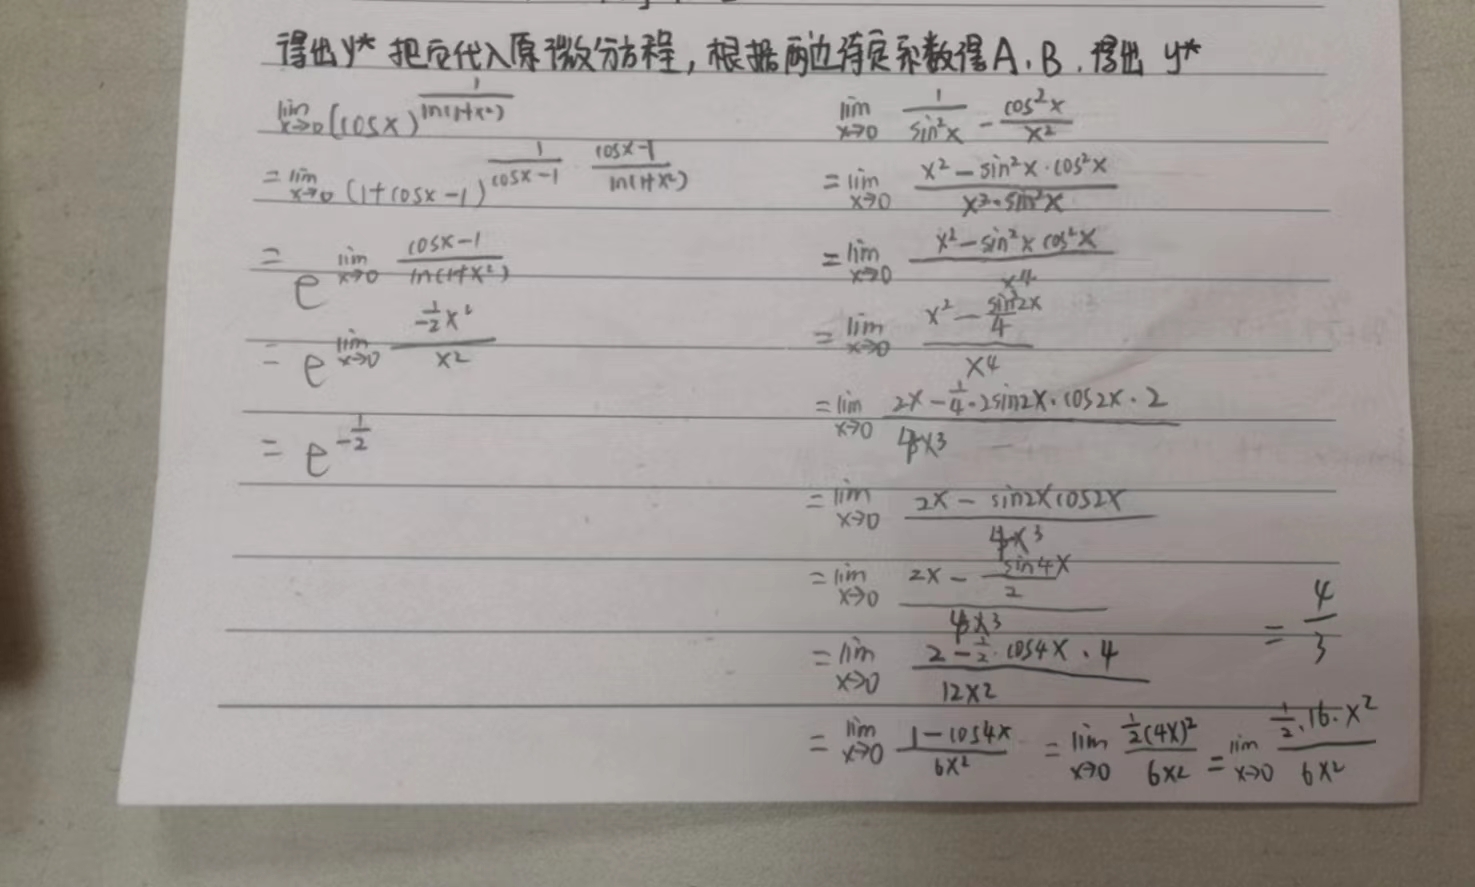 得出y* 把它代入原微分方程，根据两边待定系数得A、B、得出 y*
lim x→0 (cosx)^(1/ln(1+x²))
= lim x→0 (1+cosx-1)^(1/(cosx-1) · (cosx-1)/ln(1+x²))
= e^(lim x→0 (cosx-1)/ln(1+x²))
= e^(lim x→0 (-1/2 x²)/x²)
= e^(-1/2)
lim x→0 1/sin²x - cos²x/x²
= lim x→0 (x²-sin²x·cos²x)/(x²·sin²x)
= lim x→0 (x²-sin²x cos²x)/x⁴
= lim x→0 (x²-sin²2x/4)/x⁴
= lim x→0 (2x-1/4·2sin2x·cos2x·2)/4x³
= lim x→0 (2x-sin2xcos2x)/4x³
= lim x→0 (2x-sin4x/2)/4x³
= lim x→0 (2-1/2·cos4x·4)/12x²
= lim x→0 (1-cos4x)/6x² = lim x→0 (1/2(4x)²)/6x² = lim x→0 (1/2·16·x²)/6x²
= 4/3